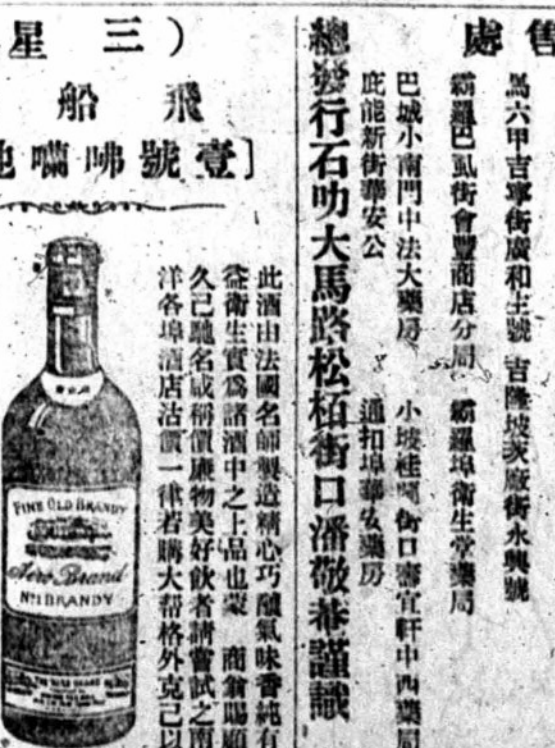 售處
馬六甲吉寧街廣和生號 吉隆坡茨廠街永興號
霸羅巴虱街會豐商店分局 霸羅埠衛生堂藥局
巴城小南門中法大藥房 小坡桂 街口壽宜軒中西藥局
庇能新街華安公 通扣埠華安藥房
總發行石叻大馬路松栢街口潘敬恭謹識
（三星
飛船
［壹號㗑囒地
此酒由法國名師製造精心巧釀氣味香純有
益衛生實為諸酒中之上品也蒙 商翁賜顧
久已馳名咸稱價廉物美好飲者請嘗試之南
洋各埠酒店沽價一律若購大幫格外克己以
FINE OLD BRANDY
Aero Brand
No1 BRANDY